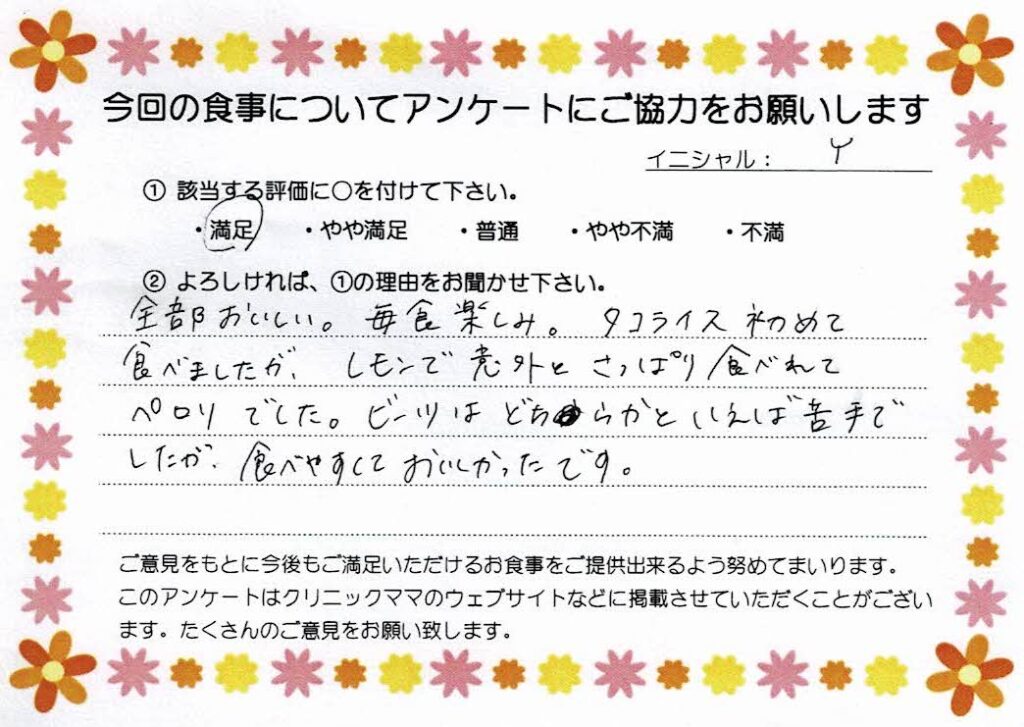 今回の食事についてアンケートにご協力をお願いします
イニシャル： Y
① 該当する評価に〇を付けて下さい。
・満足 ・やや満足 ・普通 ・やや不満 ・不満
② よろしければ、①の理由をお聞かせ下さい。
全部おいしい。毎食楽しみ。タコライス初めて
食べましたが、レモンで意外とさっぱり食べれて
ペロリでした。ビーンツはどちらかといえば苦手で
したが、食べやすくておいしかったです。
ご意見をもとに今後もご満足いただけるお食事をご提供出来るよう努めてまいります。
このアンケートはクリニックママのウェブサイトなどに掲載させていただくことがござい
ます。たくさんのご意見をお願い致します。